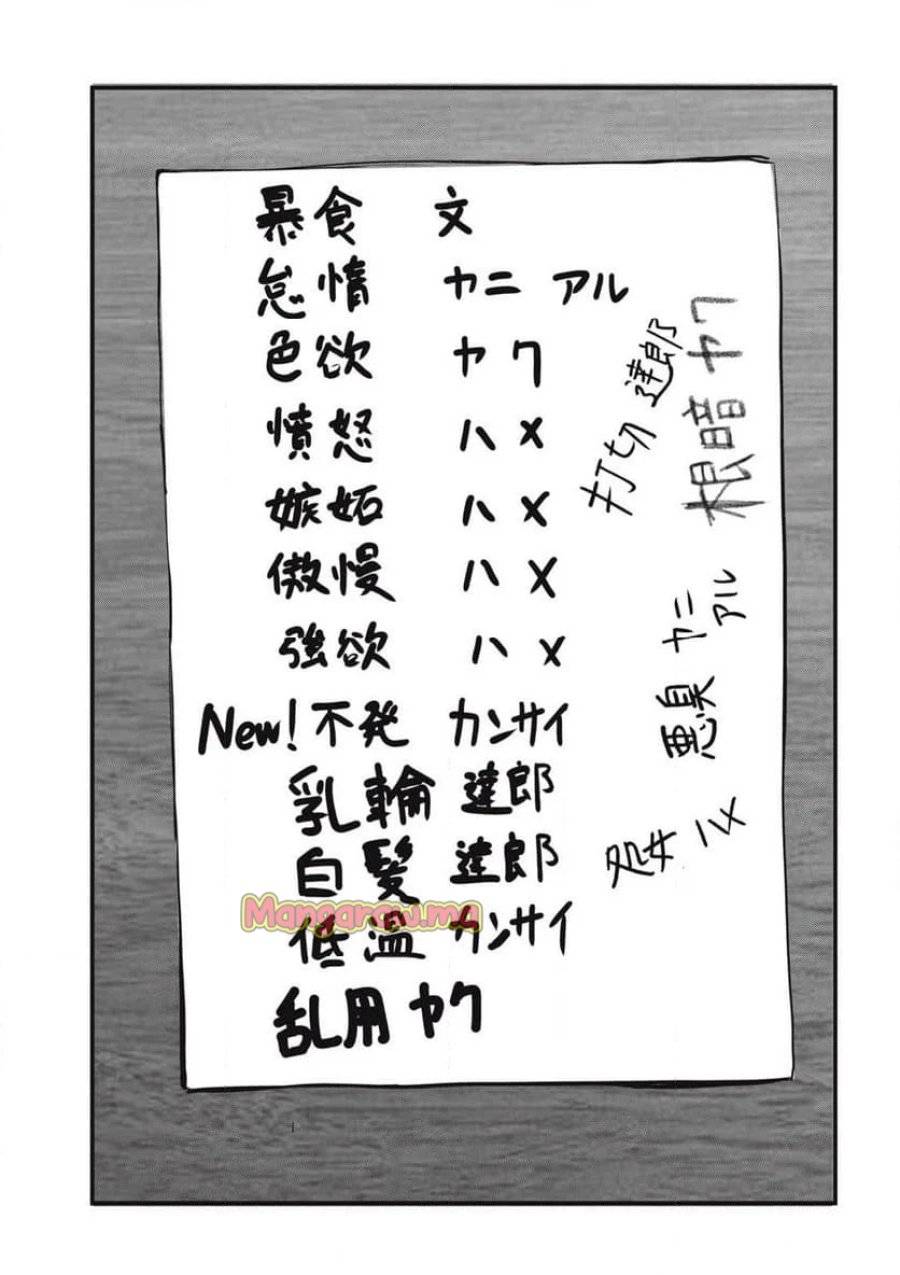 暴食 文
怠惰 ヤニ アル
色欲 ヤク
憤怒 ハメ
嫉妬 ハメ
傲慢 ハメ
強欲 ハメ
New! 不発 カンサイ
乳輪 達郎
白髪 達郎
低温 カンサイ
乱用 ヤク
打切 達郎
根暗 ヤク
悪臭 ヤニ
アル
処女 ハメ
Mangaraw.ma